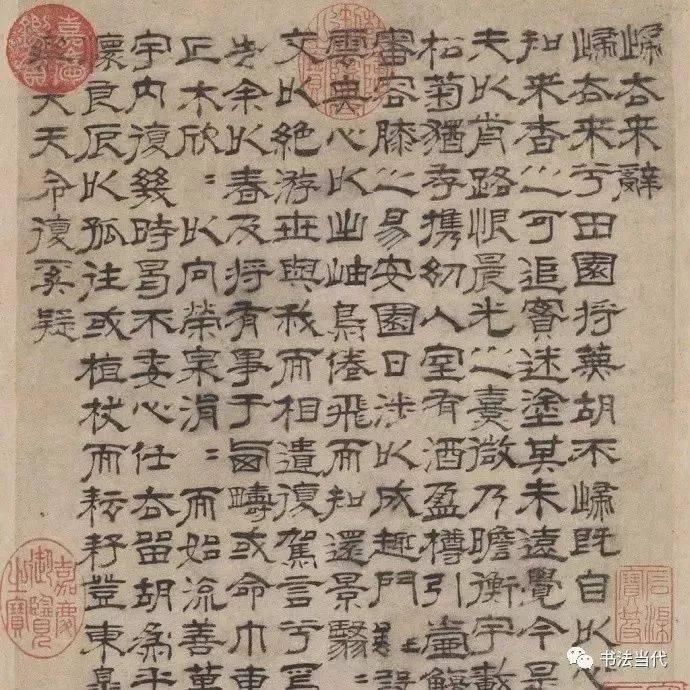 歸去來辭
歸去來兮田園将蕪胡不歸既自以
知來者之可追實迷塗其未遠覺今是
夫以前路恨晨光之熹微乃瞻衡宇載
松菊猶存携幼入室有酒盈樽引壺觴
審容膝之易安園日涉以成趣門
雲無心以出岫鳥倦飛而知還景翳
交以絶游世與我而相遺復駕言兮焉
告余以春及将有事于西疇或命巾車
丘木欣〻以向榮泉涓〻而始流善萬
宇内復幾時曷不委心任去留胡為乎
懷良辰以孤往或植杖而耘耔登東皋
樂夫天命復奚疑
嘉慶御覽之寶
书法当代